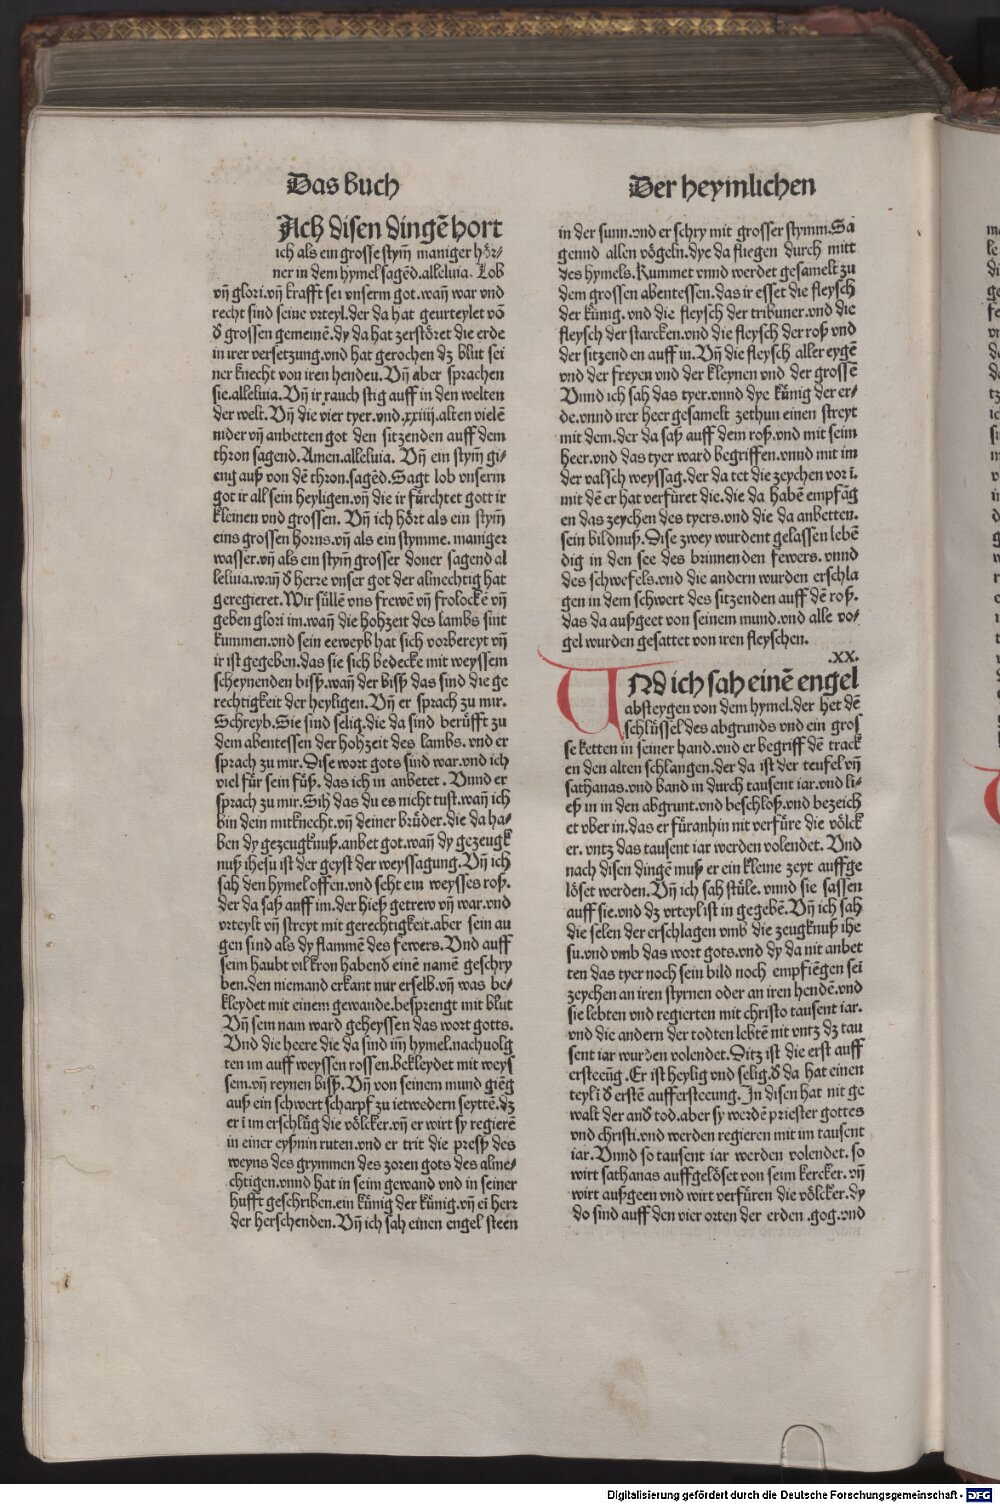 Das buch
Der heymlichen
Ach disen dingẽ hort
ich als ein grosse stym̃ maniger hör-
ner in dem hymel sagẽd.alleluia. Lob
vñ glori.vñ krafft sei vnserm got.wañ war vnd
recht sind seine vrteyl.der da hat geurteylet võ
d grossen gemeinẽ.dy da hat zerstöret die erde
in irer versetzung.vnd hat gerochen dz blut sei
ner knecht von iren henden. Vñ aber sprachen
sie.alleluia. Vñ ir rauch stig auff in den welten
der welt. Vñ die vier tyer.vnd.xxiiij.alten vielẽ
nider vñ anbetten got den sitzenden auff dem
thron sagend. Amen.alleluia. Vñ ein stym̃ gi-
eng auß von dẽ thron.sagẽd. Sagt lob vnserm
got ir all sein heyligen.vñ die ir fürchtet gott ir
kleinen vnd grossen. Vñ ich hört als ein stym̃
eins grossen horns.vñ als ein stymme. maniger
wasser.vñ als ein stym̃ grosser doner sagend al
leluia.wañ d herre vnser got der almechtig hat
geregieret. Wir süllẽ vns frewẽ vñ frolockẽ vñ
geben glori im.wañ die hohzeit des lambs sint
kummen.vnd sein eeweyb hat sich vorbereyt vñ
ir ist gegeben.das sie sich bedecke mit weyssem
scheynenden biß.wañ der biß das sind die ge
rechtigkeit der heyligen. Vñ er sprach zu mir.
Schreyb. Sie sind selig.die da sind berüfft zu
dem abentessen der hohzeit des lambs. vnd er
sprach zu mir. Dise wort gots sind war.vnd ich
viel für sein füß. das ich in anbetet . Vnnd er
sprach zu mir. Sih das du es nicht tust.wañ ich
bin dein mitknecht.vñ deiner brüder.die da ha-
ben dy gezeugknuß.anbet got.wañ dy gezeugk
nuß ihesu ist der geyst der weyssagung. Vñ ich
sah den hymel offen.vnd seht ein weysses roß.
der da saß auff im.der hieß getrew vñ war.vnd
vrteylt vñ streyt mit gerechtigkeit.aber sein au
gen sind als dy flammẽ des fewers. Vnd auff
seim haubt vil kron habend einẽ namẽ geschry
ben.den niemand erkant nur er selb.vñ was be-
kleydet mit einem gewande.besprengt mit blut
Vñ sein nam ward geheyssen das wort gotts.
Vnd die heere die da sind im̃ hymel.nachuolg
ten im auff weyssen rossen.bekleydet mit weys
sem.vñ reynen biß. Vñ von seinem mund giẽg
auß ein schwert scharpf zu ietwedern seyttẽ.dz
er ĩ im erschlüg die völcker.vñ er wirt sy regierẽ
in einer eyßnin ruten.vnd er trit die preß des
weyns des grymmen des zoren gots des alme-
chtigen.vnnd hat in seim gewand vnd in seiner
hufft geschriben.ein künig der künig.vñ eĩ herr
der herschenden. Vñ ich sah einen engel steen
in der sunn.vnd er schry mit grosser stymm. Sa
gennd allen vögeln.dye da fliegen durch mitt
des hymels. Kummet vnnd werdet gesamelt zu
dem grossen abentessen.das ir esset die fleysch
der künig. vnd die fleysch der tribuner.vnd die
fleysch der starcken.vnd die fleysch der roß vnd
der sitzenden auff in. Vñ die fleysch aller eygẽ
vnd der freyen vnd der kleynen vnd der grossẽ
Vnnd ich sah das tyer.vnnd dye künig der er-
de.vnnd irer heer gesamelt zethun einen streyt
mit dem.der da saß auff dem roß.vnd mit seim
heer.vnd das tyer ward begriffen.vnnd mit im
der valsch weyssag.der da tet die zeychen vor ĩ.
mit dẽ er hat verfüret die.die da habẽ empfãg
en das zeychen des tyers.vnd die da anbetten.
sein bildnuß. Dise zwey wurdent gelassen lebẽ
dig in den see des brinnenden fewers. vnnd
des schwefels.vnd die andern wurden erschla
gen in dem schwert des sitzenden auff dẽ roß.
das da außgeet von seinem mund.vnd alle vo-
gel wurden gesattet von iren fleyschen.
.XX.
VNd ich sah einẽ engel
absteygen von dem hymel.der het dẽ
schlüssel des abgrunds vnd ein gros
se ketten in seiner hand.vnd er begriff dẽ track
en den alten schlangen.der da ist der teufel vñ
sathanas.vnd band in durch tausent iar.vnd li-
eß in in den abgrunt.vnd beschloß.vnd bezeich
et vber in.das er füranhin nit verfüre die völck
er. vntz das tausent iar werden volendet. Vnd
nach disen dingẽ muß er ein kleine zeyt auffge
löset werden. Vñ ich sah stüle. vnnd sie sassen
auff sie.vnd dz vrteyl ist in gegebẽ. Vñ ich sah
die selen der erschlagen vmb die zeugknuß ihe
su.vnd vmb das wort gots.vnd dy da nit anbet
ten das tyer noch sein bild noch empfiẽgen seĩ
zeychen an iren styrnen oder an iren hendẽ.vnd
sie lebten vnd regierten mit christo tausent iar.
vnd die andern der todten lebtẽ nit vntz dz tau
sent iar wurden volendet. Ditz ist die erst auff
ersteeũg . Er ist heylig vnd selig.d da hat einen
teyl ĩ d erstẽ auffersteeung. In disen hat nit ge
walt der and tod.aber sy werdẽ priester gottes
vnd christi.vnd werden regieren mit im tausent
iar. Vnnd so tausent iar werden volendet. so
wirt sathanas auffgelöset von seim kercker. vñ
wirt außgeen vnd wirt verfüren die völcker.dy
do sind auff den vier orten der erden .gog.vnd
Digitalisierung gefördert durch die Deutsche Forschungsgemeinschaft - DFG